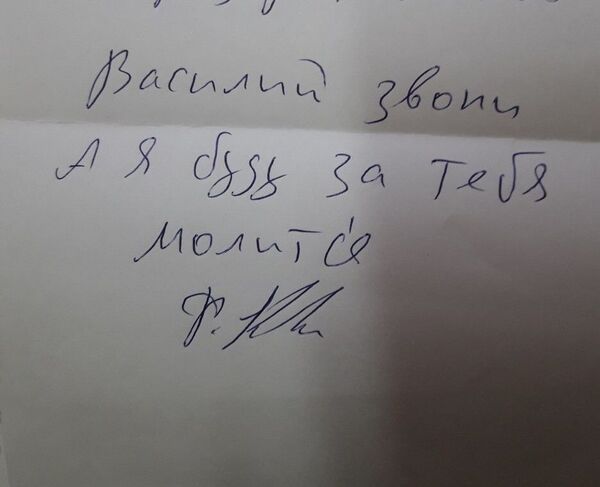 Василий звони
А я буду за тебя
молится